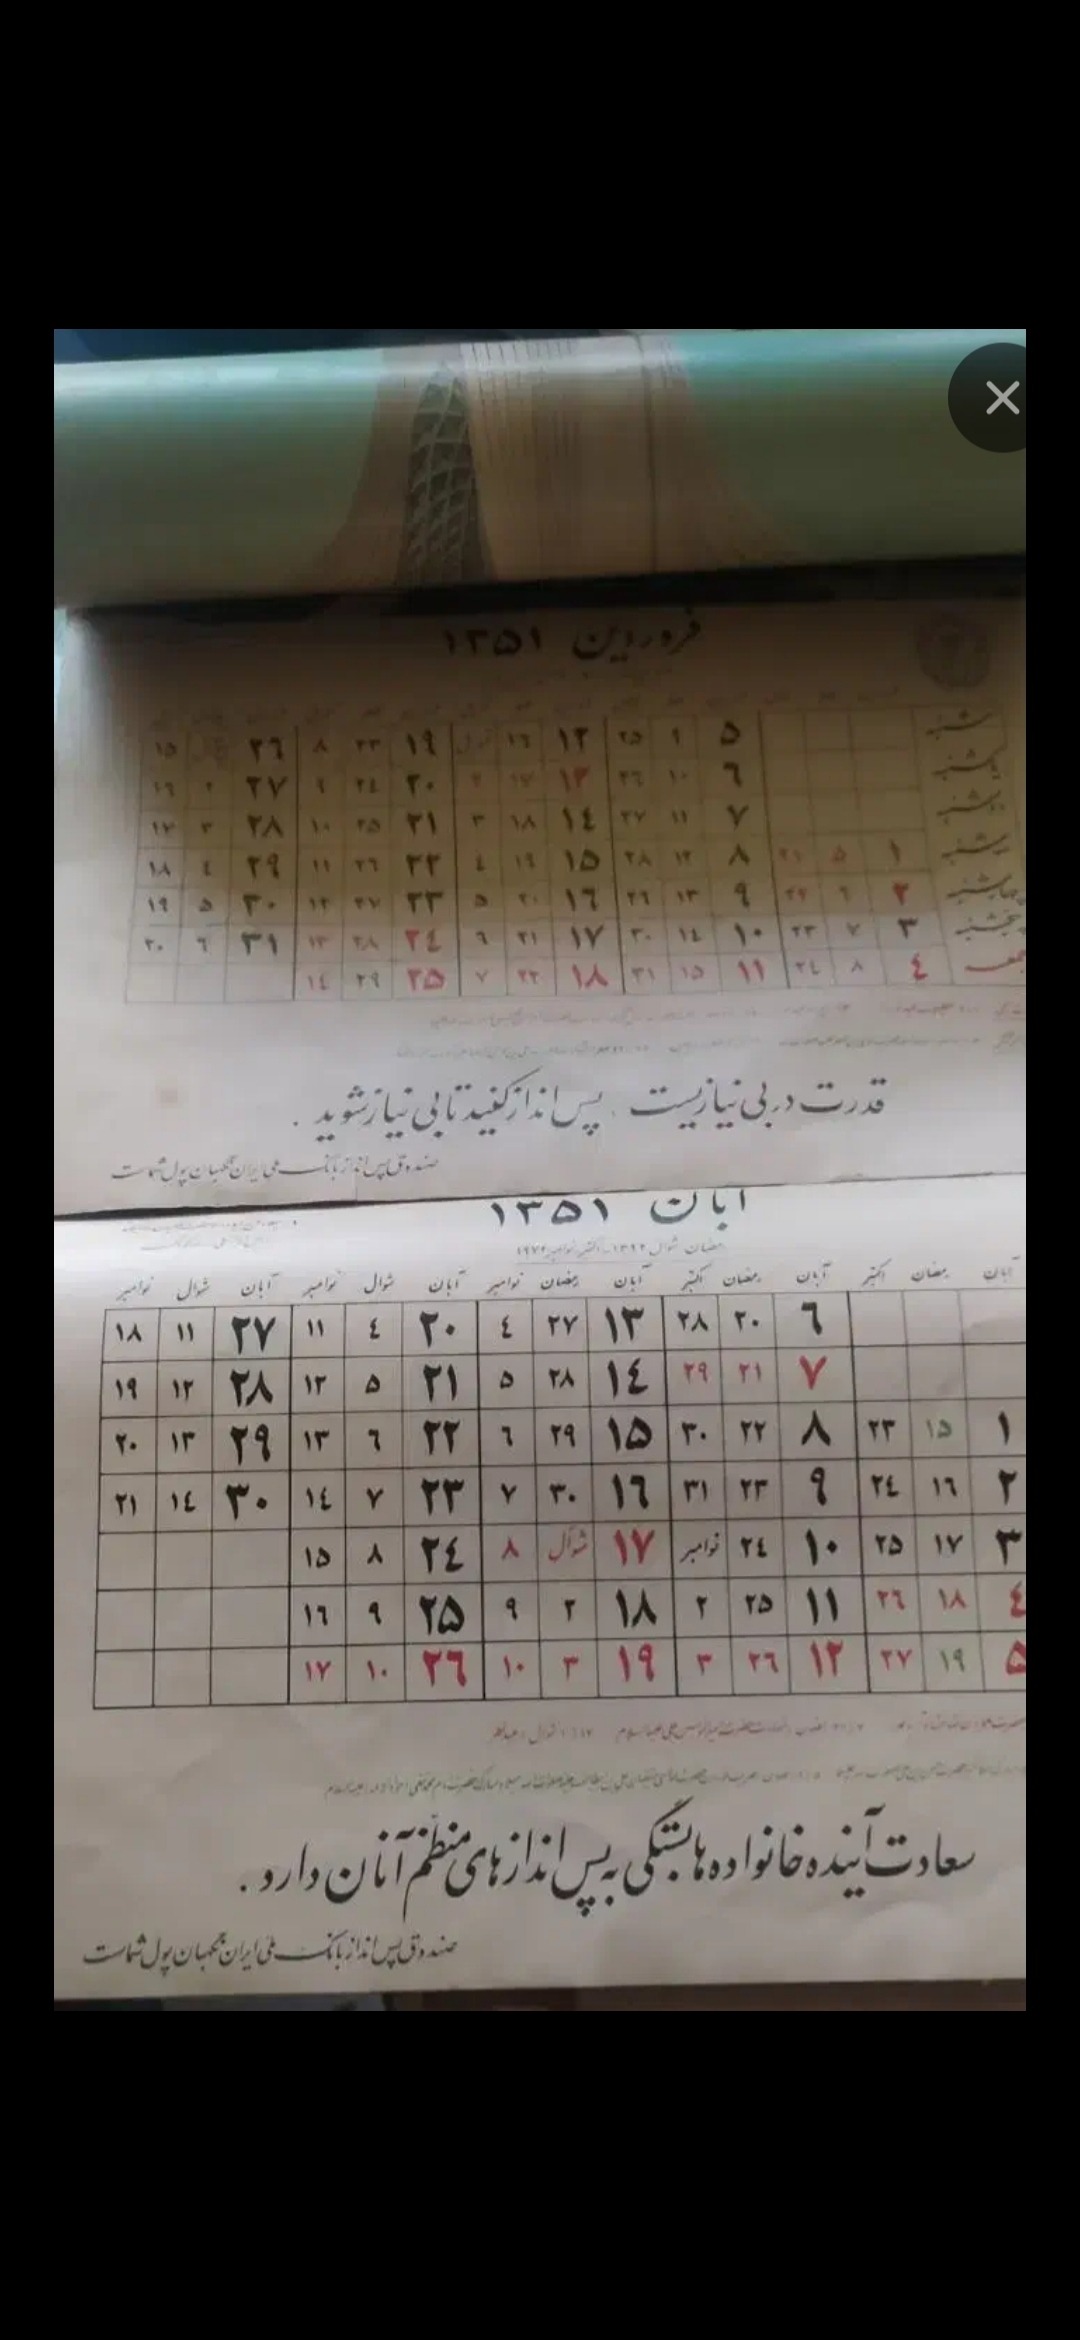 فروردین ۱۳۵۱
شنبه ۵ ۹ ۲۵ ۱۲ ۱۶ ۱۹ ۲۳ ۸ ۲۶ ۱۵
یکشنبه ۶ ۱۰ ۲۶ ۱۳ ۱۷ ۲ ۲۰ ۲٤ ۹ ۲۷ ۲ ۱۶
دوشنبه ۷ ۱۱ ۲۷ ۱٤ ۱۸ ۳ ۲۱ ۲۵ ۱۰ ۲۸ ۳ ۱۷
سه‌شنبه ۱ ۵ ۲۱ ۸ ۱۲ ۲۸ ۱۵ ۱۹ ٤ ۲۲ ۲۶ ۱۱ ۲۹ ٤ ۱۸
چهارشنبه ۲ ۶ ۹ ۱۳ ۲۹ ۱۶ ۲۰ ۵ ۲۳ ۲۷ ۱۲ ۳۰ ۵ ۱۹
پنجشنبه ۳ ۷ ۲۳ ۱۰ ۱٤ ۳۰ ۱۷ ۲۱ ۶ ۲٤ ۲۸ ۱۳ ۳۱ ۶ ۲۰
جمعه ٤ ۸ ۲٤ ۱۱ ۱۵ ۳۱ ۱۸ ۲۲ ۷ ۲۵ ۲۹ ۱٤
قدرت در بی نیازیست . پس انداز کنید تا بی نیاز شوید .
صندوق پس انداز بانک ملی ایران نگهبان پول شماست
آبان ۱۳۵۱
رمضان شوال ۱۳۹۲ - اکتبر نوامبر ۱۹۷۲
آبان رمضان اکتبر آبان رمضان اکتبر آبان رمضان نوامبر آبان شوال نوامبر آبان شوال نوامبر
۶ ۲۰ ۲۸ ۱۳ ۲۷ ٤ ۲۰ ٤ ۱۱ ۲۷ ۱۱ ۱۸
۷ ۲۱ ۲۹ ۱٤ ۲۸ ۵ ۲۱ ۵ ۱۲ ۲۸ ۱۲ ۱۹
۱ ۱۵ ۲۳ ۸ ۲۲ ۳۰ ۱۵ ۲۹ ۶ ۲۲ ۶ ۱۳ ۲۹ ۱۳ ۲۰
۲ ۱۶ ۲٤ ۹ ۲۳ ۳۱ ۱۶ ۳۰ ۷ ۲۳ ۷ ۱٤ ۳۰ ۱٤ ۲۱
۳ ۱۷ ۲۵ ۱۰ ۲٤ نوامبر ۱۷ شوال ۸ ۲٤ ۸ ۱۵
٤ ۱۸ ۲۶ ۱۱ ۲۵ ۲ ۱۸ ۲ ۹ ۲۵ ۹ ۱۶
۵ ۱۹ ۲۷ ۱۲ ۲۶ ۳ ۱۹ ۳ ۱۰ ۲۶ ۱۰ ۱۷
سعادت آینده خانواده ها بستگی به پس اندازهای منظم آنان دارد .
صندوق پس انداز بانک ملی ایران نگهبان پول شماست